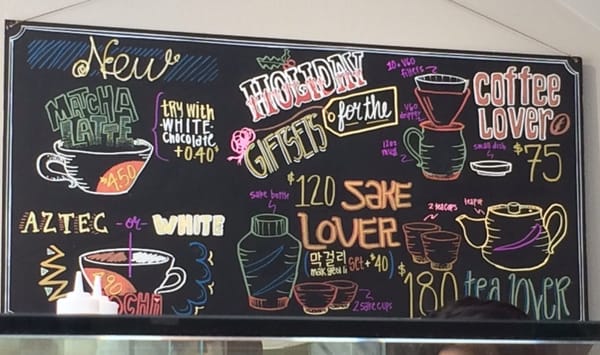 New
MATCHA
LATTE
$4.50
try with
WHITE
Chocolate
+0.40
AZTEC -or- WHITE
HOLIDAY
GIFTSETS
for the
10x V60
filters
V60
dripper
12oz
mug
small dish
COFFEE
LOVER
$75
sake bottle
$120 SAKE
LOVER
(막걸리
makgeolli Set +$40)
2 sake cups
2 teacups
teapot
$180 tea lover